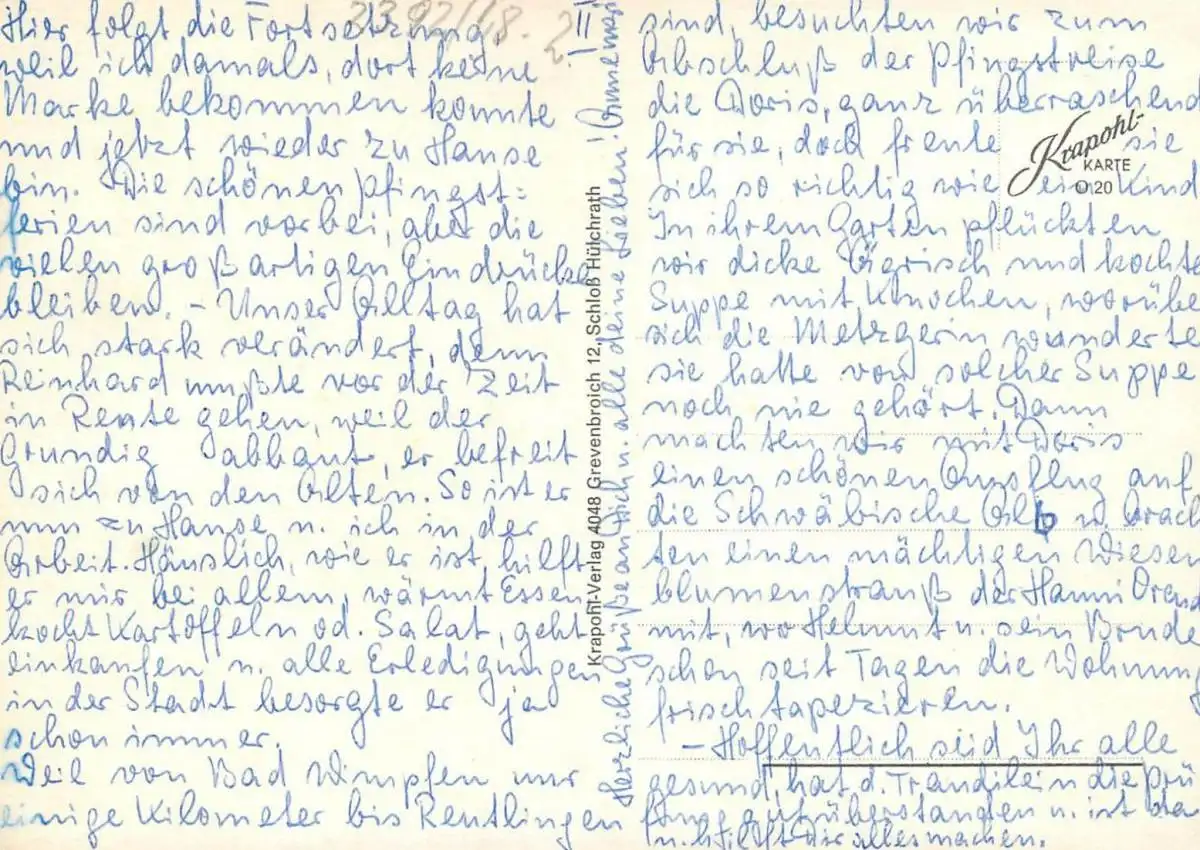 Hier folgt die Fortsetzung,
weil ich damals, dort keine
Marke bekommen konnte
und jetzt wieder zu Hause
bin. Die schönen Pfingst=
ferien sind vorbei, aber die
vielen großartigen Eindrücke
bleiben. - Unser Alltag hat
sich stark verändert, denn
Reinhard mußte vor der Zeit
in Rente gehen, weil der
Grundig abbaut, er befreit
sich von den Alten. So ist er
nun zu Hause u. ich in der
Arbeit. Häuslich, wie er ist, hilft
er mir bei allem, wärmt Essen
kocht Kartoffeln od. Salat, geht
einkaufen u. alle Erledigungen
in der Stadt besorgte er ja
schon immer.
Weil von Bad Wimpfen nur
einige Kilometer bis Reutlingen
II
Herzliche Grüße an Dich u. alle deine Lieben! Annemarie
Krapohl-Verlag 4048 Grevenbroich 12, Schloß Hülchrath
sind, besuchten wir zum
Abschluß der Pfingstreise
die Doris, ganz überraschend
für sie, doch freute sie
sich so richtig wie ein Kind
In ihrem Garten pflückten
wir dicke Ägrisch und kochte
Suppe mit Knochen, worübe
sich die Metzgerin wunderte
sie hatte von solcher Suppe
noch nie gehört. Dann
machten wir mit Doris
einen schönen Ausflug auf
die Schwäbische Alb u. brach
ten einen mächtigen Wiesen
blumenstrauß der Hanni Orend
mit, wo Helmut u. sein Brude
schon seit Tagen die Wohnung
frisch tapezieren.
- Hoffentlich seid Ihr alle
gesund, hat d. Traudilein die Prü
fung gut überstanden u. ist da
u. hilft Dir alles machen.
Krapohl-
KARTE
O 20